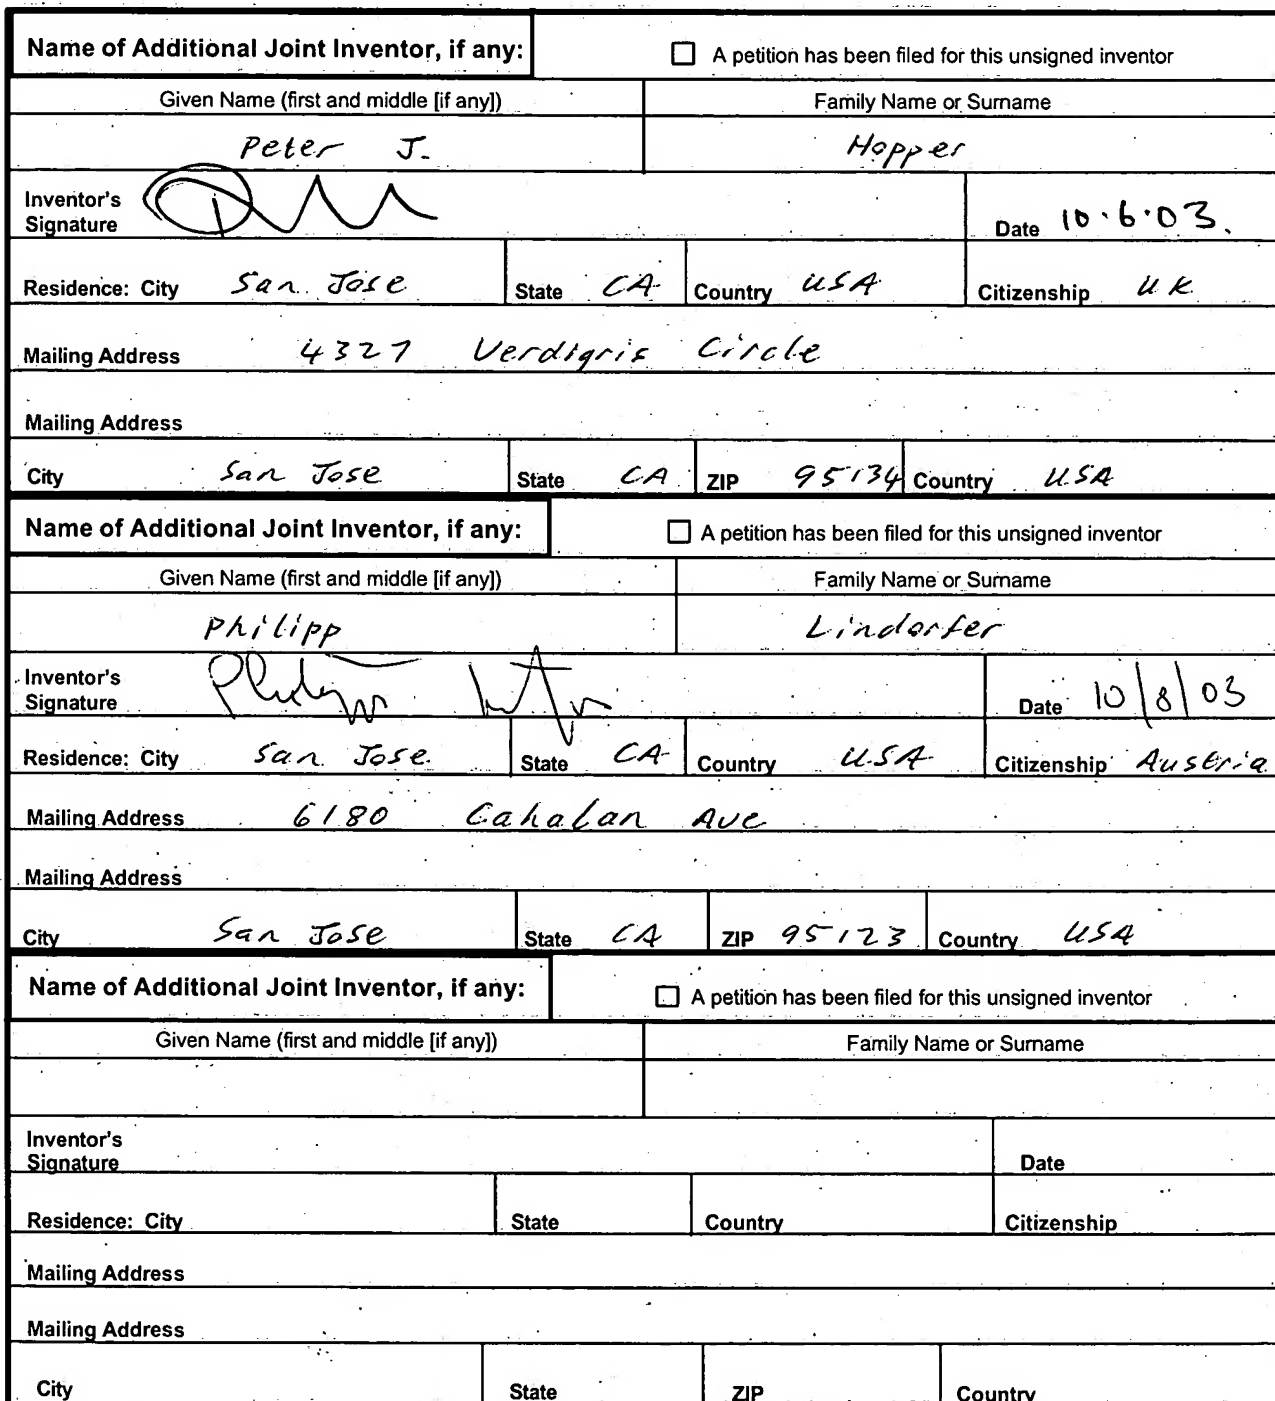 Name of Additional Joint Inventor, if any: ☐ A petition has been filed for this unsigned inventor
Given Name (first and middle [if any]) Family Name or Surname
Peter J. Hopper
Inventor's
Signature Date 10·6·03.
Residence: City San Jose State CA Country USA Citizenship UK
Mailing Address 4327 Verdigris Circle
Mailing Address
City San Jose State CA ZIP 95134 Country USA
Name of Additional Joint Inventor, if any: ☐ A petition has been filed for this unsigned inventor
Given Name (first and middle [if any]) Family Name or Surname
Philipp Lindorfer
Inventor's
Signature Date 10/8/03
Residence: City San Jose State CA Country USA Citizenship Austria
Mailing Address 6180 Cahalan Ave
Mailing Address
City San Jose State CA ZIP 95123 Country USA
Name of Additional Joint Inventor, if any: ☐ A petition has been filed for this unsigned inventor
Given Name (first and middle [if any]) Family Name or Surname
Inventor's
Signature Date
Residence: City State Country Citizenship
Mailing Address
Mailing Address
City State ZIP Country